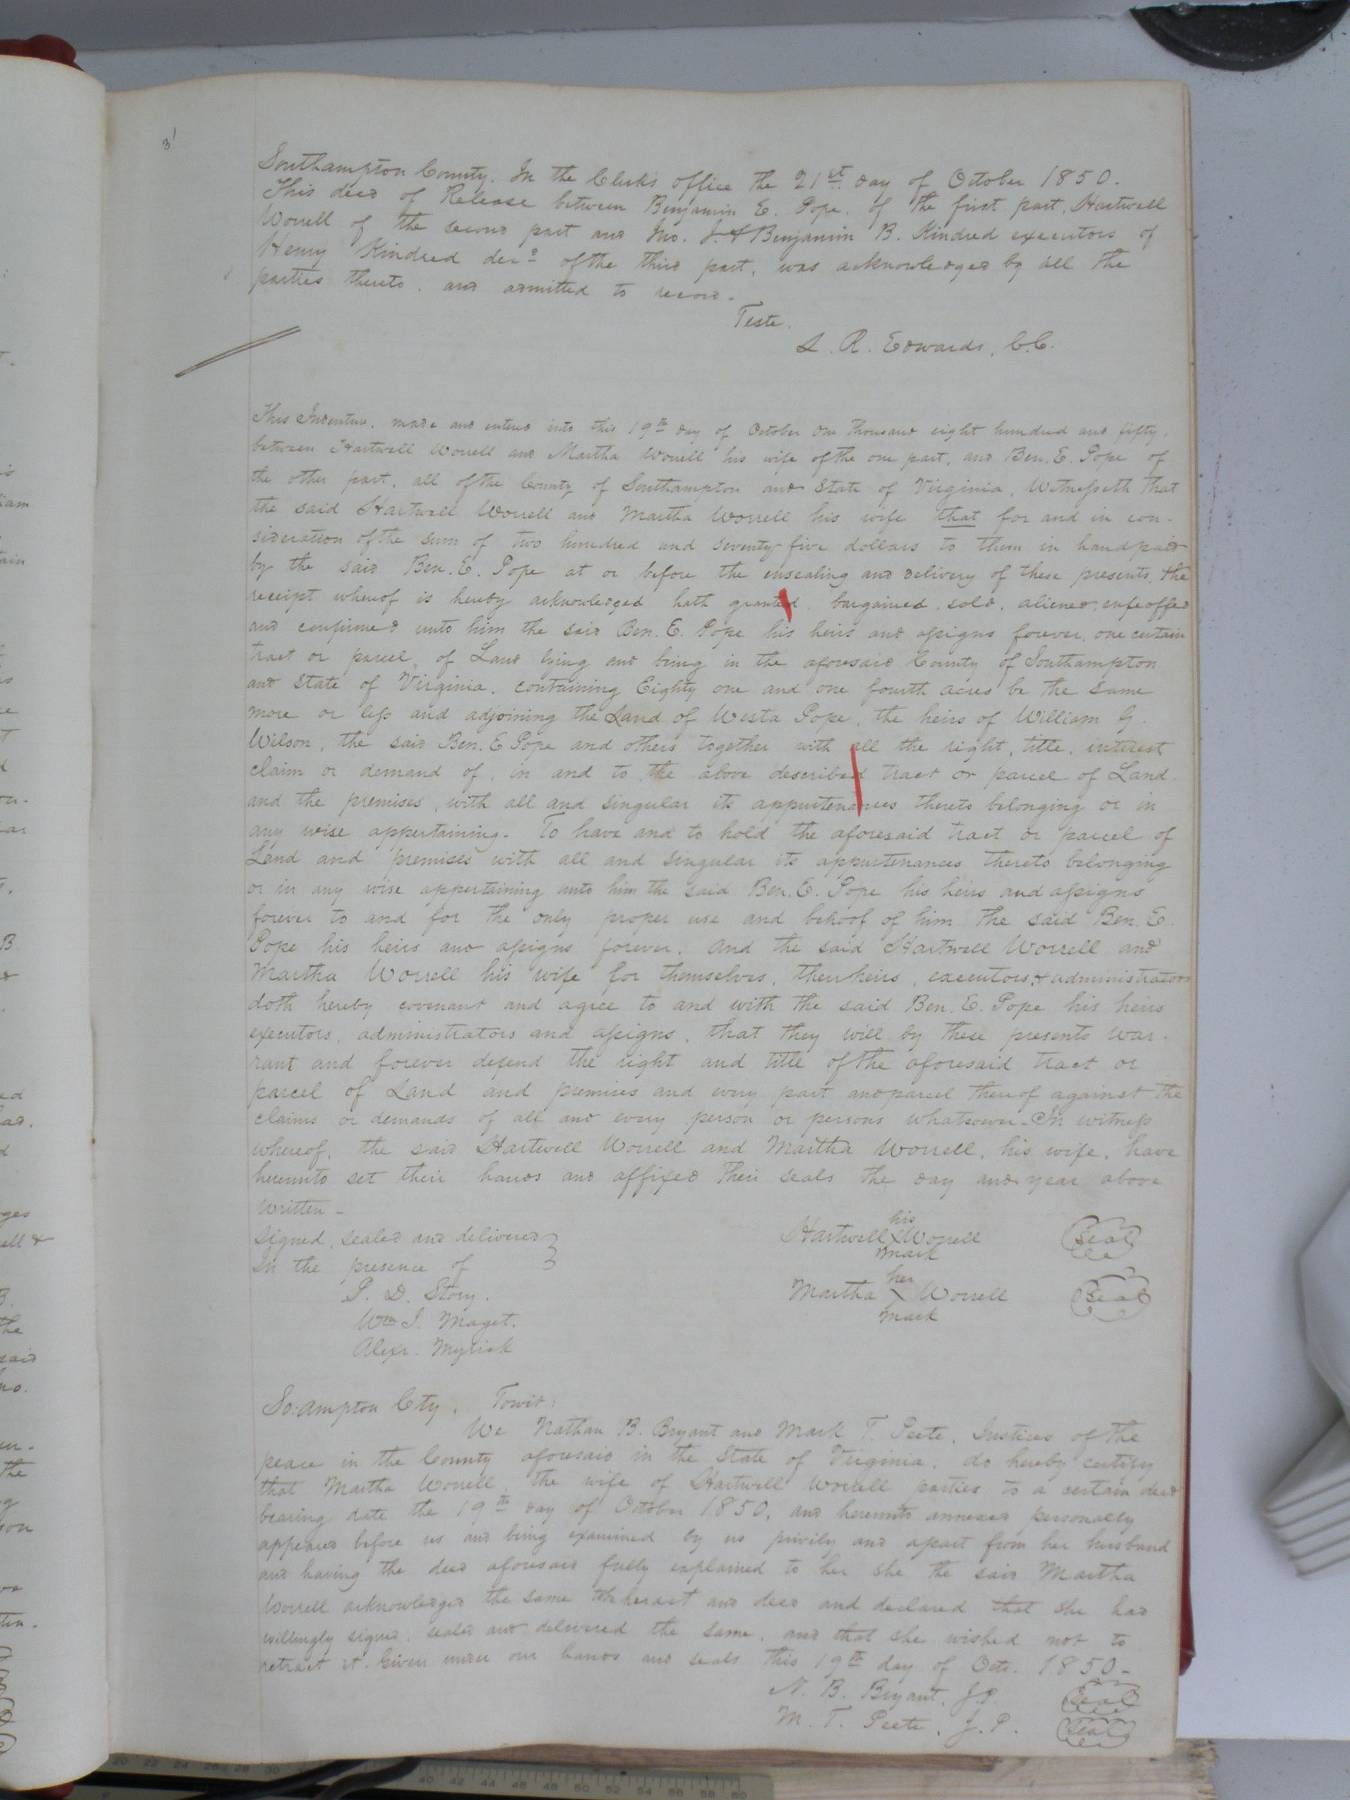 31
Southampton County. In the Clerk's office the 21st day of October 1850.
This deed of Release between Benjamin E. Pope. of the first part, Hartwell
Worrell of the second part and Jno. J. & Benjamin B. Kindred executors of
Henry Kindred decd of the third part, was acknowledged by all the
parties thereto. and admitted to record.
Teste.
L. R. Edwards, C.C.
This Indenture, made and entered into this 19th day of October One thousand eight hundred and fifty.
between Hartwell Worrell and Martha Worrell his wife of the one part, and Ben. E. Pope of
the other part, all of the County of Southampton and State of Virginia, Witnesseth that
the said Hartwell Worrell and Martha Worrell his wife that for and in con-
sideration of the sum of two hundred and seventy-five dollars to them in hand paid
by the said Ben. E. Pope at or before the ensealing and delivery of these presents, the
receipt whereof is hereby acknowledged hath granted, bargained, sold, aliened, enfeoffed
and confirmed unto him the said Ben. E. Pope his heirs and assigns forever, one certain
tract or parcel, of Land lying and being in the aforesaid County of Southampton
and State of Virginia, containing Eighty one and one fourth acres be the same
more or less and adjoining the Land of Westa Pope, the heirs of William G.
Wilson, the said Ben. E Pope and others together with all the right, title, interest
claim or demand of, in and to the above described tract or parcel of Land
and the premises, with all and singular its appurtenances thereto belonging or in
any wise appertaining. To have and to hold the aforesaid tract or parcel of
Land and premises with all and singular its appurtenances thereto belonging
or in any wise appertaining unto him the said Ben. E. Pope his heirs and assigns
forever to and for the only proper use and behoof of him the said Ben. E.
Pope his heirs and assigns forever. And the said Hartwell Worrell and
Martha Worrell his wife for themselves, their heirs, executors, & administrators
doth hereby covenant and agree to and with the said Ben. E. Pope his heirs
executors, administrators and assigns, that they will by these presents war-
rant and forever defend the right and title of the aforesaid tract or
parcel of Land and premises and every part and parcel thereof against the
claims or demands of all and every person or persons whatsoever. In witness
whereof, the said Hartwell Worrell and Martha Worrell, his wife, have
hereunto set their hands and affixed their seals the day and year above
written -
Signed, sealed and delivered
In the presence of
P. D. Story.
Wm J. Maget.
Alexr. Myrick
his
Hartwell X Worrell Seal
mark
her
Martha X Worrell Seal
mark
So:ampton Cty. Towit:
We Nathan B. Bryant and Mark T. Peete, Justices of the
peace in the County aforesaid in the State of Virginia, do hereby certify
that Martha Worrell, the wife of Hartwell Worrell parties to a certain deed
bearing date the 19th day of October 1850, and hereunto annexed personally
appeared before us and being examined by us privily and apart from her husband
and having the deed aforesaid fully explained to her she the said Martha
Worrell acknowledged the same to be her act and deed and declared that she had
willingly signed, sealed and delivered the same, and that she wished not to
retract it. Given under our hands and seals this 19th day of Octr. 1850-
N. B. Bryant, J.P. Seal
M. T. Peete, J. P. Seal